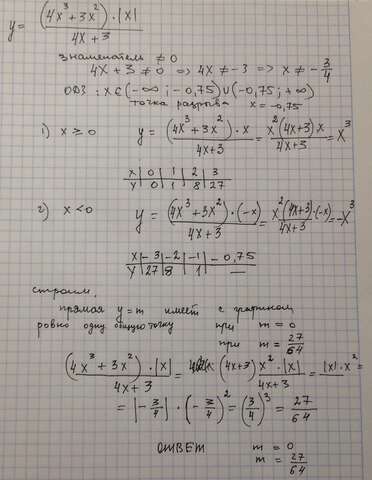 y = (4x³ + 3x²) · |x| / 4x + 3
знаменатель ≠ 0
4x + 3 ≠ 0 => 4x ≠ -3 => x ≠ -3/4
ОДЗ : x ∈ (-∞ ; -0,75) ∪ (-0,75 ; +∞)
точка разрыва x = -0,75
1) x ≥ 0 y = (4x³ + 3x²) · x / 4x+3 = x²(4x+3) x / 4x+3 = x³
x | 0 | 1 | 2 | 3
y | 0 | 1 | 8 | 27
2) x < 0 y = (4x³ + 3x²) · (-x) / 4x+3 = x²(4x+3) · (-x) / 4x+3 = -x³
x | -3 | -2 | -1 | -0,75
y | 27 | 8 | 1 | —
строим,
прямая y = m имеет с графиком
ровно одну общую точку при m = 0
при m = 27/64
(4x³ + 3x²) · |x| / 4x+3 = (4x+3) x² · |x| / 4x+3 = |x| · x² =
= |-3/4| · (-3/4)² = (3/4)³ = 27/64
ОТВЕТ m = 0
m = 27/64